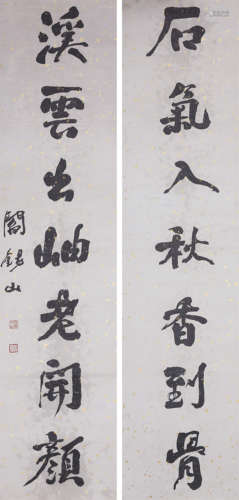 石氣入秋香到骨
溪雲出岫老開顏
閻錫山